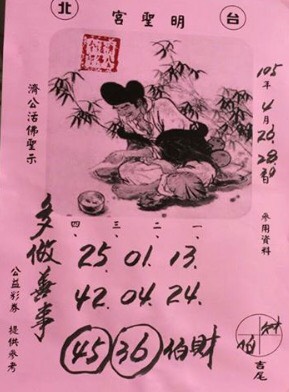 台 明聖宮 北
105年4月26.28
參用資料
濟公活佛聖示
四、三、二、一、
25. 01. 13.
42. 04. 24.
45 36 伯財
多做善事
公益彩券 提供參考
吉尾